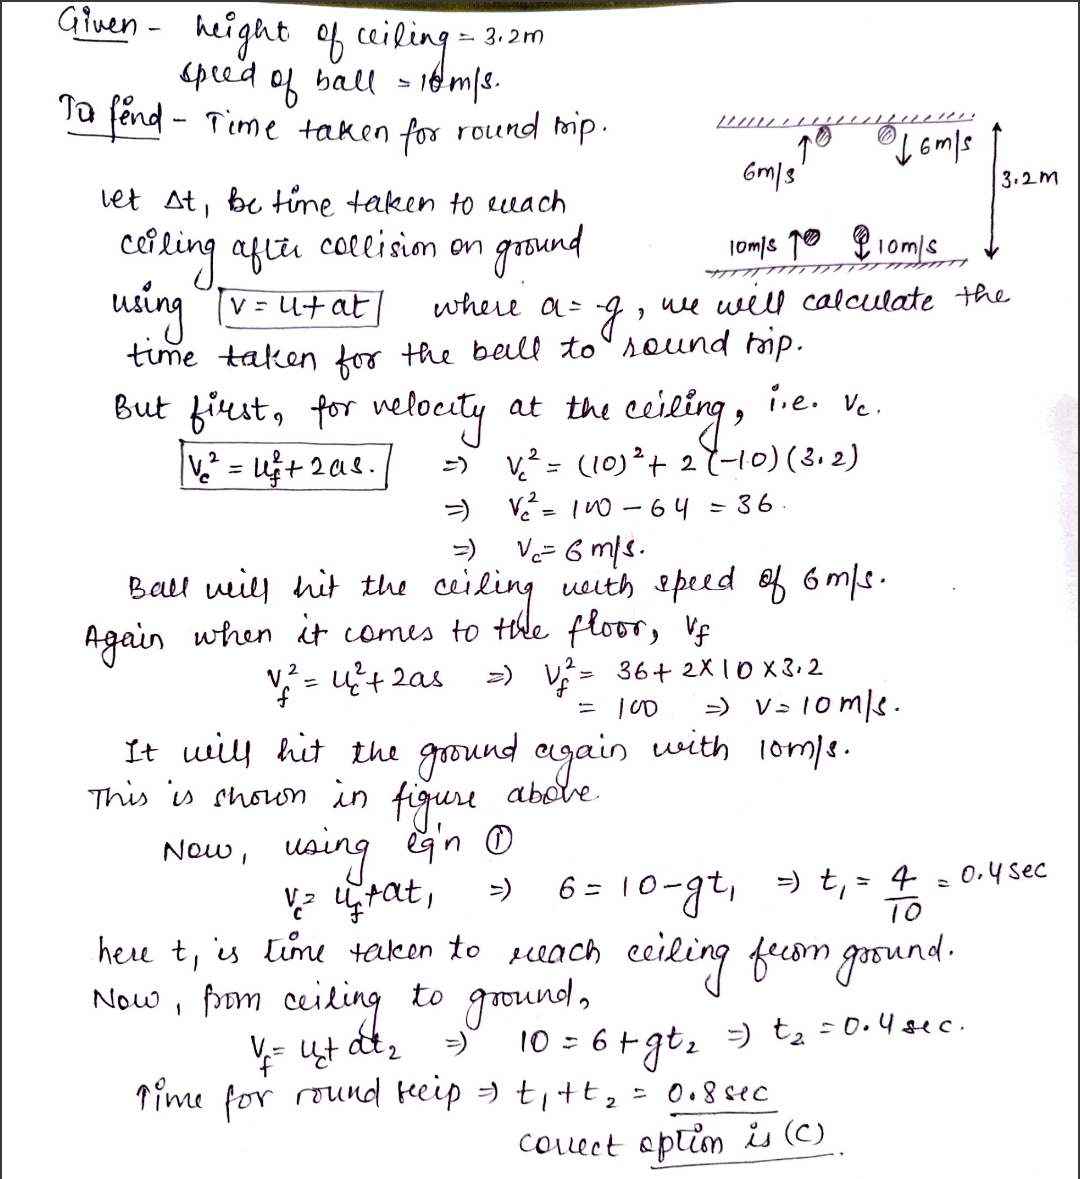 Given - height of ceiling = 3.2m
speed of ball = 10m/s.
To find - Time taken for round trip.
6m/s
6m/s
3.2m
10m/s
10m/s
let Δt, be time taken to reach
ceiling after collision on ground
using v = u + at where a = -g, we will calculate the
time taken for the ball to round trip.
But first, for velocity at the ceiling, i.e. Vc.
Vc² = Uf² + 2as. ⇒ Vc² = (10)² + 2(-10)(3.2)
⇒ Vc² = 100 - 64 = 36.
⇒ Vc = 6 m/s.
Ball will hit the ceiling with speed of 6m/s.
Again when it comes to the floor, Vf
Vf² = Uc² + 2as ⇒ Vf² = 36 + 2×10×3.2
= 100 ⇒ V = 10 m/s.
It will hit the ground again with 10m/s.
This is shown in figure above.
Now, using eq'n ①
Vc = Uf + at, ⇒ 6 = 10 - gt₁ ⇒ t₁ = 4/10 = 0.4 sec
here t₁ is time taken to reach ceiling from ground.
Now, from ceiling to ground,
Vf = Uc + at₂ ⇒ 10 = 6 + gt₂ ⇒ t₂ = 0.4 sec.
Time for round trip ⇒ t₁ + t₂ = 0.8 sec
correct option is (C).